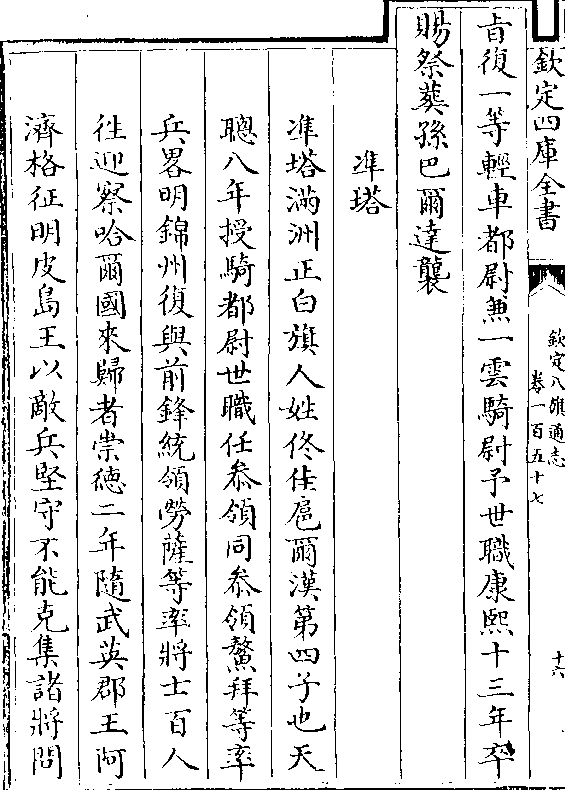 欽定四庫全書
欽定八旗通志
卷一百五十七
十六
旨復一等輕車都尉兼一雲騎尉予世職康熙十三年卒
賜祭葬孫巴爾達襲
準塔
準塔滿洲正白旗人姓佟佳扈爾漢第四子也天
聰八年授騎都尉世職任叅領同叅領鰲拜等率
兵畧明錦州復與前鋒統領勞薩等率將士百人
往迎察哈爾國來歸者崇德二年隨武英郡王阿
濟格征明皮島王以敵兵堅守不能克集諸將問